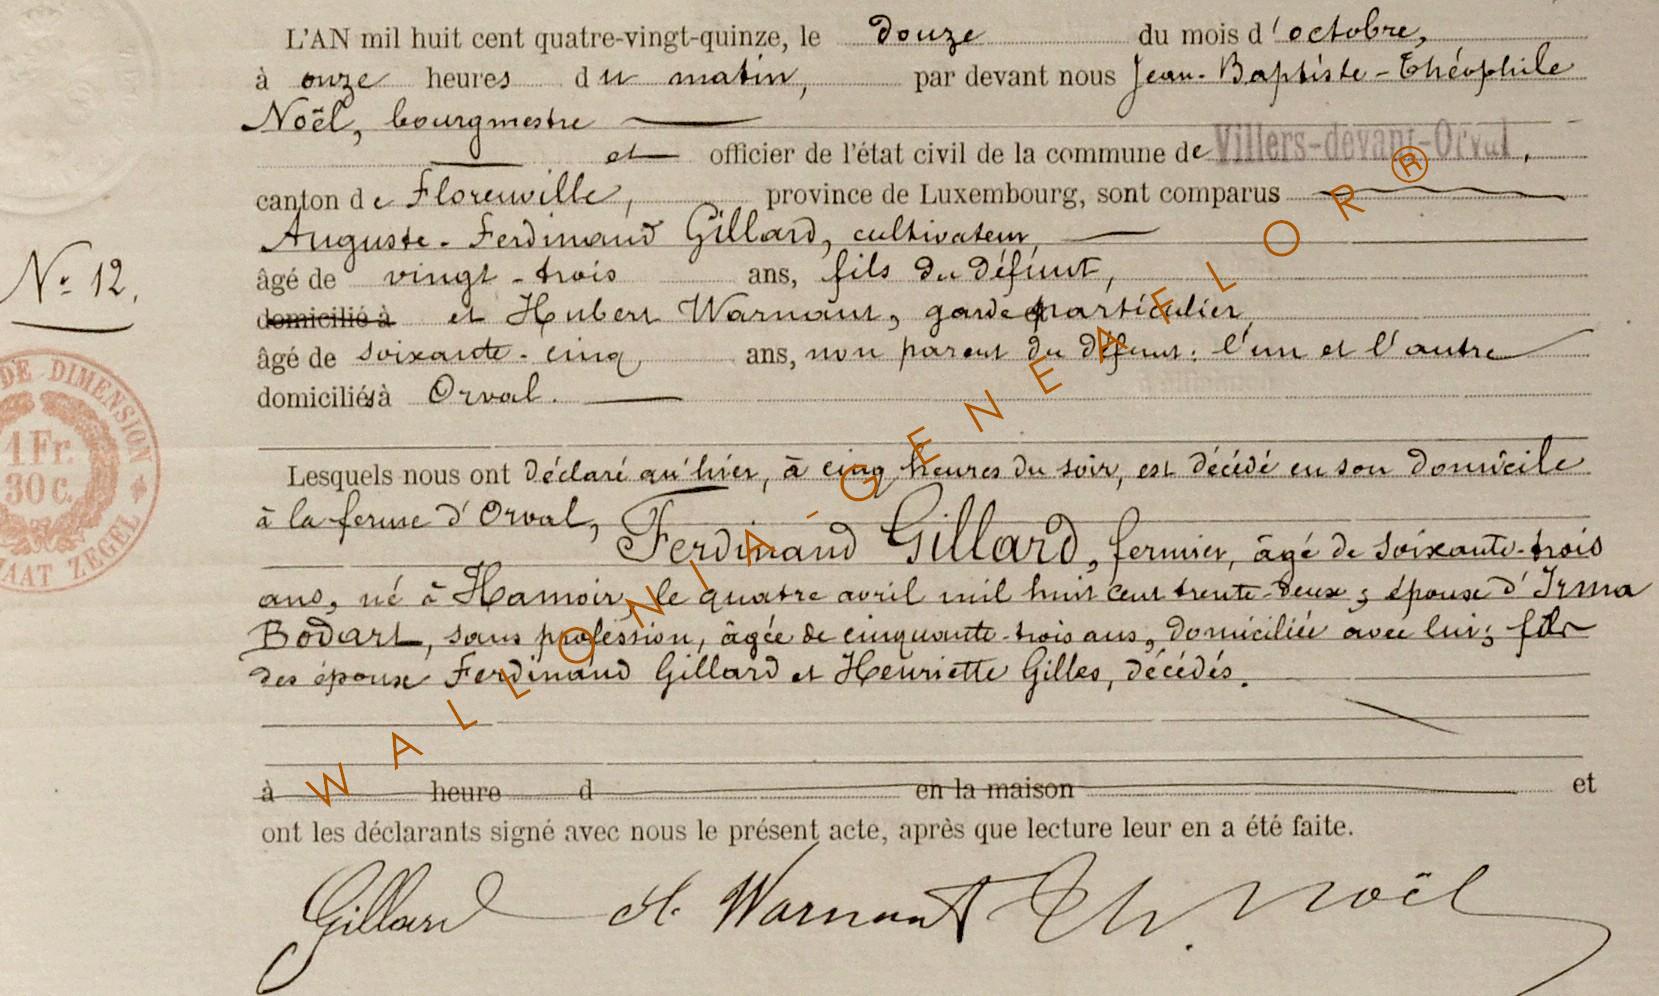 L'AN mil huit cent quatre-vingt-quinze, le douze du mois d'octobre,
à onze heures du matin, par devant nous Jean-Baptiste-Théophile
Noël, bourgmestre
et officier de l'état civil de la commune de Villers-devant-Orval,
canton de Florenville, province de Luxembourg, sont comparus
Auguste-Ferdinand Gillard, cultivateur,
âgé de vingt-trois ans, fils du défunt,
N° 12.
domicilié à et Hubert Warnant, garde particulier,
âgé de soixante-cinq ans, non parent du défunt; l'un et l'autre
domiciliés à Orval.
DE DIMENSION
1 Fr.
30 C.
ZEGEL
Lesquels nous ont déclaré qu'hier, à cinq heures du soir, est décédé en son domicile
à la ferme d'Orval,
Ferdinand Gillard, fermier, âgé de soixante-trois
ans, né à Hamoir, le quatre avril mil huit cent trente-deux; époux d'Irma
Bodart, sans profession, âgée de cinquante-trois ans, domiciliée avec lui; fils
des époux Ferdinand Gillard et Henriette Gilles, décédés.
à heure d en la maison et
ont les déclarants signé avec nous le présent acte, après que lecture leur en a été faite.
Gillard H. Warnant Th. Noël
WALLONIA-GENEAFLOR®